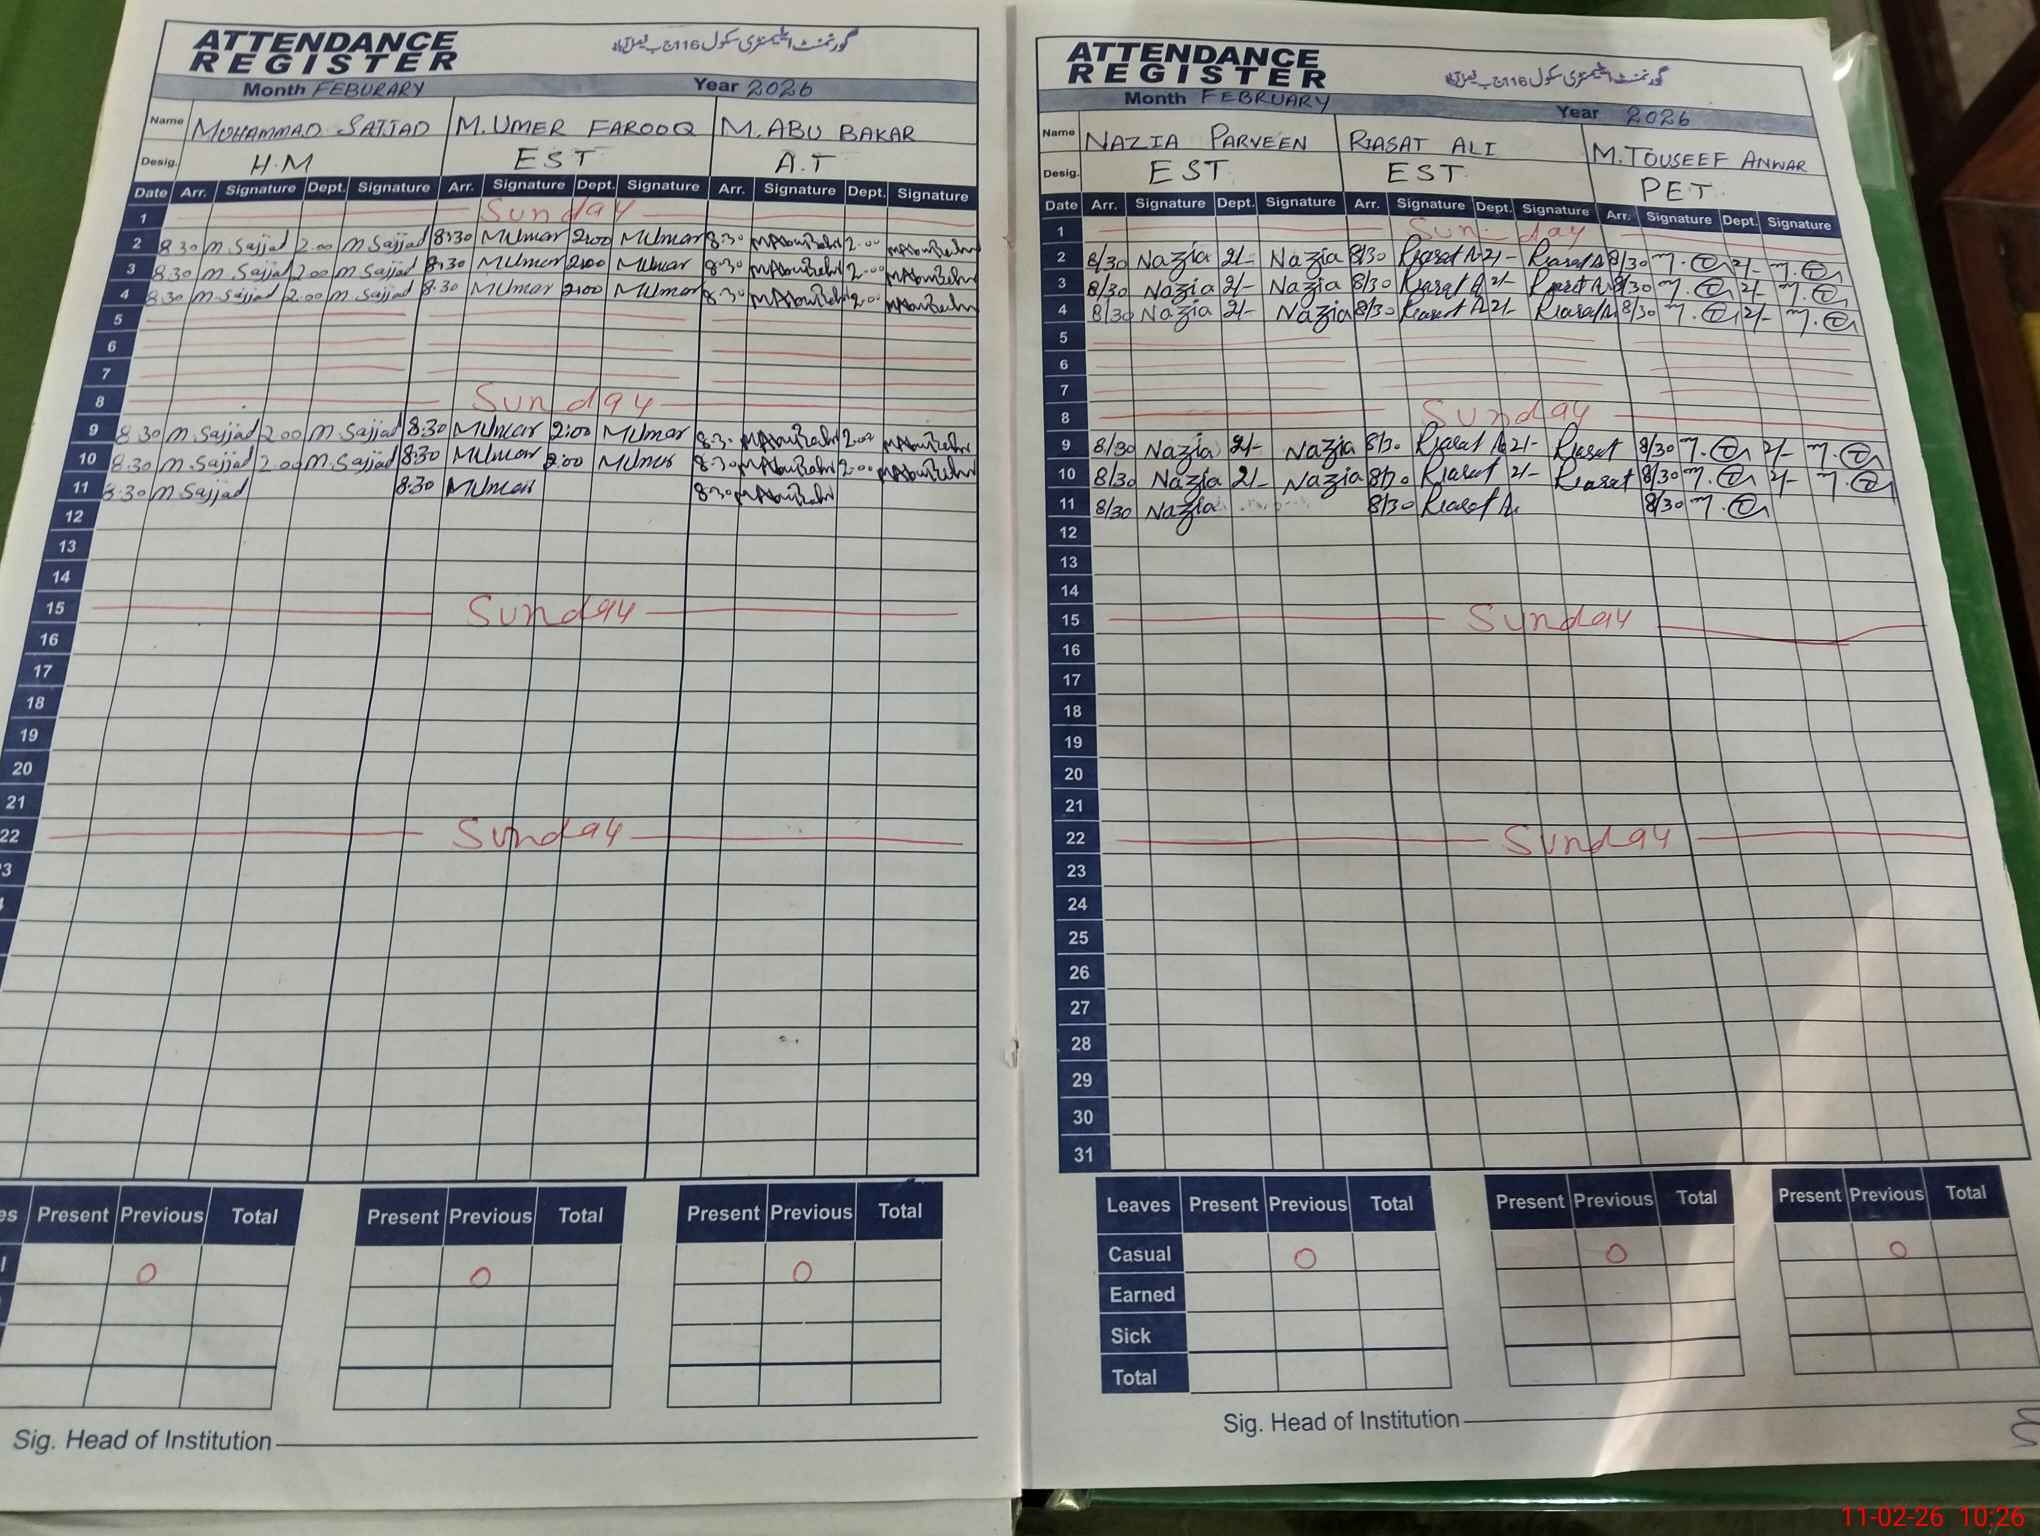 ATTENDANCE
REGISTER
گورنمنٹ ایلیمنٹری سکول 116 ج ب فیصل آباد
Month FEBURARY Year 2026
Name MUHAMMAD SAJJAD M. UMER FAROOQ M. ABU BAKAR
Desig. H.M EST A.T
Date Arr. Signature Dept. Signature Arr. Signature Dept. Signature Arr. Signature Dept. Signature
1 Sunday
2 8:30 M. Sajjad 2:00 M. Sajjad 8:30 MUmar 2:00 MUmar 8:30 2:00
3 8:30 M. Sajjad 2:00 M. Sajjad 8:30 MUmar 2:00 MUmar 8:30 2:00
4 8:30 M. Sajjad 2:00 M. Sajjad 8:30 MUmar 2:00 MUmar 8:30 2:00
5
6
7
8 Sunday
9 8:30 M. Sajjad 2:00 M. Sajjad 8:30 MUmar 2:00 MUmar 8:30 2:00
10 8:30 M. Sajjad 2:00 M. Sajjad 8:30 MUmar 2:00 MUmar 8:30 2:00
11 8:30 M. Sajjad 8:30 MUmar 8:30
12
13
14
15 Sunday
16
17
18
19
20
21
22 Sunday
Present Previous Total Present Previous Total Present Previous Total
0 0 0
Sig. Head of Institution
ATTENDANCE
REGISTER
گورنمنٹ ایلیمنٹری سکول 116 ج ب فیصل آباد
Month FEBRUARY Year 2026
Name NAZIA PARVEEN RIASAT ALI M. TOUSEEF ANWAR
Desig. EST EST PET
Date Arr. Signature Dept. Signature Arr. Signature Dept. Signature Arr. Signature Dept. Signature
1 Sunday
2 8/30 Nazia 2/- Nazia 8/30 Riasat A 2/- Riasat A 8/30 2/-
3 8/30 Nazia 2/- Nazia 8/30 Riasat A 2/- Riasat A 8/30 2/-
4 8/30 Nazia 2/- Nazia 8/30 Riasat A 2/- Riasat A 8/30 2/-
5
6
7
8 Sunday
9 8/30 Nazia 2/- Nazia 8/30 Riasat A 2/- Riasat 8/30 2/-
10 8/30 Nazia 2/- Nazia 8/30 Riasat 2/- Riasat 8/30 2/-
11 8/30 Nazia 8/30 Riasat A. 8/30
12
13
14
15 Sunday
16
17
18
19
20
21
22 Sunday
23
24
25
26
27
28
29
30
31
Leaves Present Previous Total Present Previous Total Present Previous Total
Casual 0 0 0
Earned
Sick
Total
Sig. Head of Institution
11-02-26 10:26